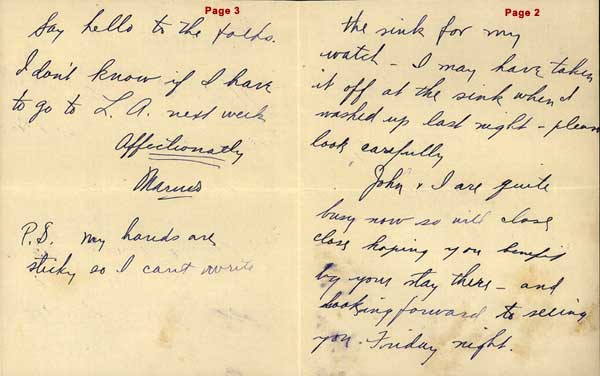 Page 3
Say hello to the folks.
I don't know if I have
to go to L. A. next week
Affectionatly
P.S. my hands are
sticky so I cant write
Page 2
the sink for my
watch - I may have taken
it off at the sink when I
washed up last night - please
look carefully
John & I are quite
busy now so will close
close hoping you benefit
by your stay there - and
looking forward to seeing
you. Friday night.